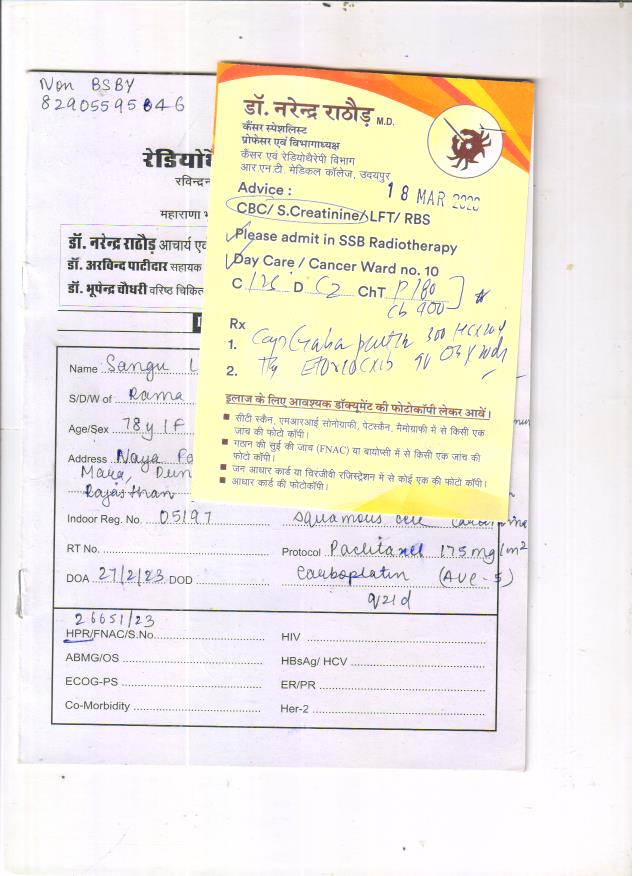 Non BSBY
82905595846
रेडियोथै
रविन्द्रन
महाराणा भ
डॉ. नरेन्द्र राठौड़ आचार्य एवं
डॉ. अरविन्द पाटीदार सहायक
डॉ. भूपेन्द्र चौधरी वरिष्ठ चिकि
डॉ. नरेन्द्र राठौड़ M.D.
कैंसर स्पेशलिस्ट
प्रोफेसर एवं विभागाध्यक्ष
कैंसर एवं रेडियोथैरेपी विभाग
आर.एन.टी. मेडिकल कॉलेज, उदयपुर
18 MAR
Advice :
CBC/ S.Creatinine/ LFT/ RBS
Please admit in SSB Radiotherapy
Day Care / Cancer Ward no. 10
C 125 D C2 ChT P 180
Cb 900
Rx
1. Cap 300
2.
इलाज के लिए आवश्यक डॉक्यूमेंट की फोटोकॉपी लेकर आवें।
सीटी स्कैन, एमआरआई सोनोग्राफी, पेटस्कैन, मैमोग्राफी में से किसी एक
की फोटो कॉपी।
गठान की सुई की जांच (FNAC) या बायोप्सी में से किसी एक जांच की
फोटो कॉपी।
जन आधार कार्ड या चिरंजीवी रजिस्ट्रेशन में से कोई एक की फोटो कॉपी।
आधार कार्ड की फोटोकॉपी।
Name Sangu
S/D/W of Rama
Age/Sex 78 y / F
Address Naya
Rajasthan
Indoor Reg. No. 05197
squamous cell
RT No.
Protocol Paclitaxel 175 mg/m2
DOA 27/2/23 DOD
Carboplatin (AUC-5)
q21d
26651/23
HPR/FNAC/S.No.
HIV
ABMG/OS
HBsAg/ HCV
ECOG-PS
ER/PR
Co-Morbidity
Her-2